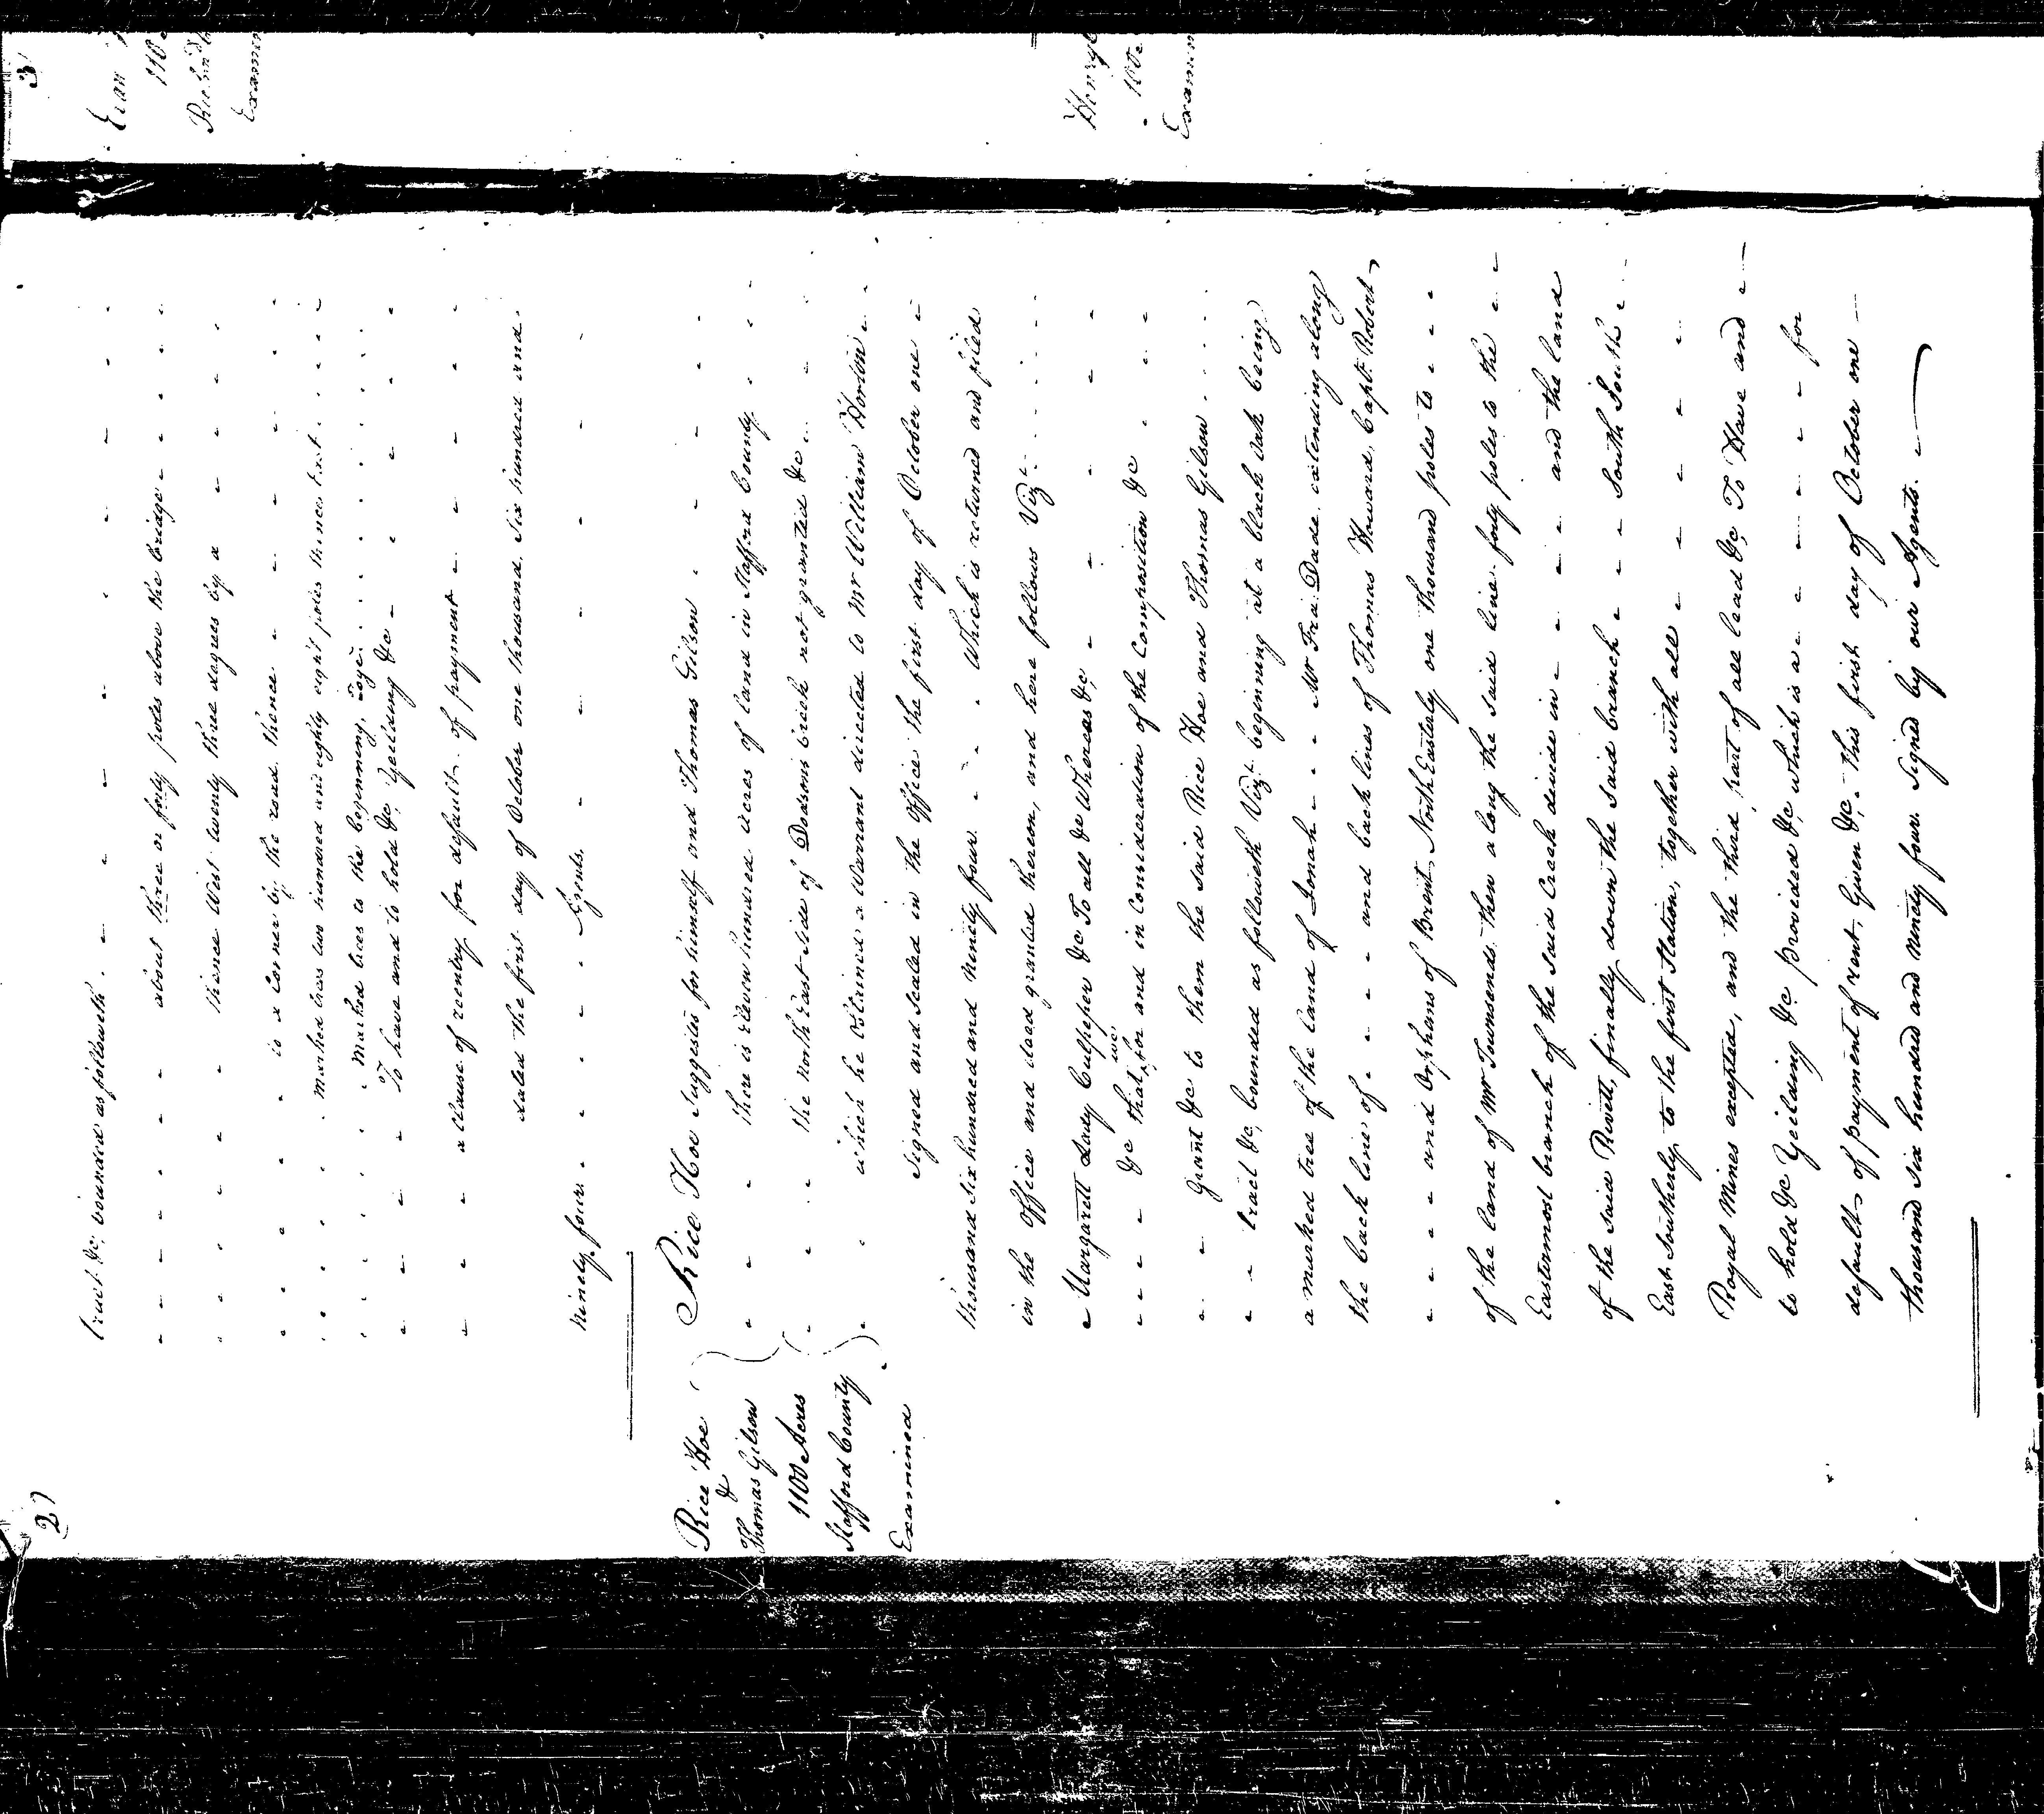 2
tract &c, bounded as followeth
about three or forty poles above the bridge
thence West twenty three degrees by a
is a corner by the road thence
marked trees two hundred and eighty eight poles thence East
marked trees to the beginning, Togr.
To have and to hold &c, Yeilding &c
a clause of reentry for default of payment
dated the first day of October one thousand Six hundred and
Ninety four. Agents.
Rice Hoe
&
Thomas Gilson
1100 Acres
Stafford County
Examined
Rice Hoe Suggestes for himself and Thomas Gilson
there is Eleven hundred acres of land in Stafford County
the North East side of Dodsons Creek not granted &c
which he obtained a Warrant directed to Mr William Horton
signed and sealed in the office the first day of October one
thousand six hundred and Ninety four which is returned and filed
in the office and deed granted thereon, and here follows Vizt
Margarett Lady Culpeper &c To all &c Whereas &c,
&c that we for and in Consideration of the Composition &c
Grant &c to them the said Rice Hoe and Thomas Gilson
tract &c, bounded as followeth Vizt beginning at a black oak being
a marked tree of the land of Jonah Mr Fra: Dade, extending along
the back line of and back lines of Thomas Howard, Capt: Robert
and Orphans of Brent, North Easterly one thousand poles to
of the land of Mr Townsend, then along the said line forty poles to the
Eastermost branch of the said Creek divide in and the land
of the said Rosett, finally down the said branch South South
East Southerly to the first Station, together with all
Royal Mines excepted, and the third part of all lead &c, To Have and
to hold &c Yeilding &c provided &c which is a for
defaults of payment of rent, Given &c. this first day of October one
thousand six hundred and ninety four. Signed by our Agents.
3
Evan
Richmd
Examin
Examin